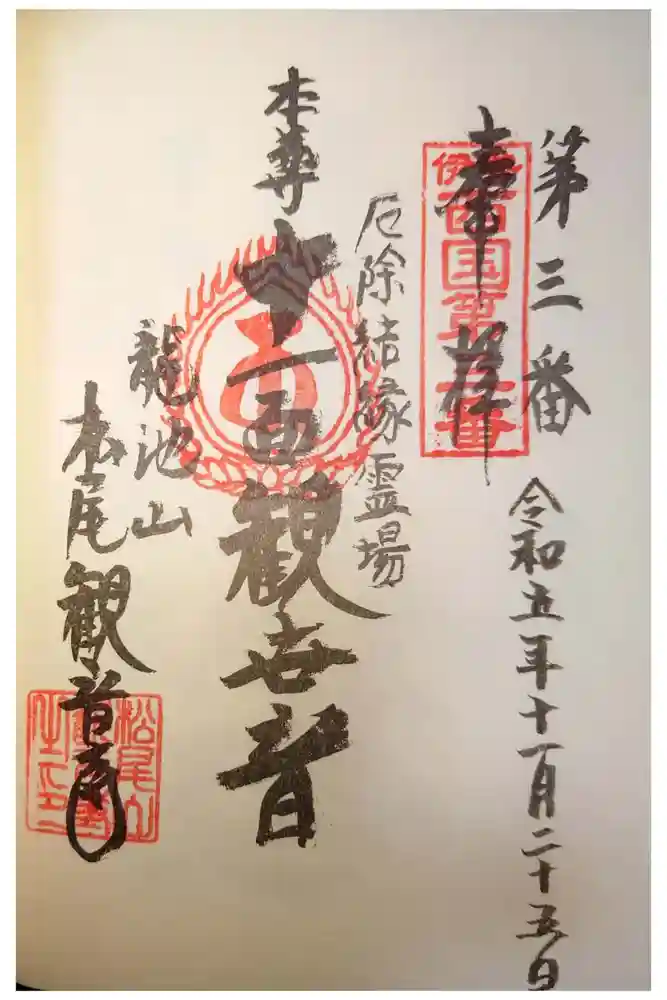 第三番
奉拝
伊勢西国第三番
令和五年十一月二十五日
厄除結縁霊場
本尊
十一面観世音
龍池山
松尾観音寺